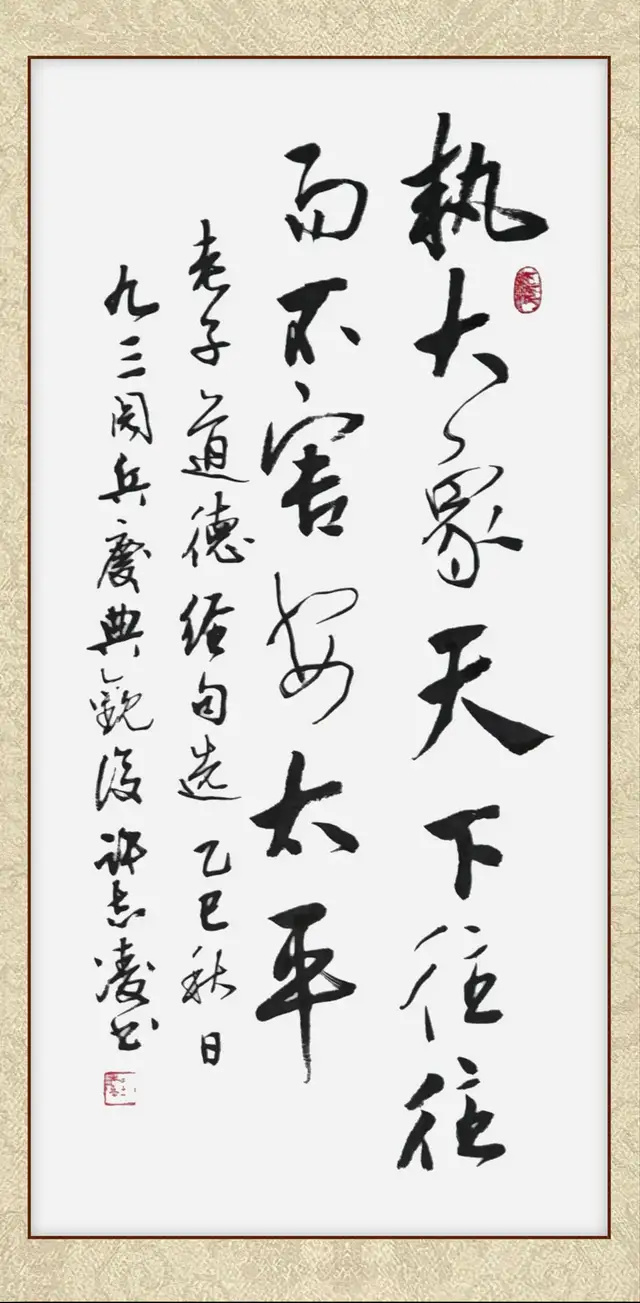 執大象天下往往
而不害安太平
老子道德经句选 乙巳秋日
九三阅兵慶典觀後 许志凌书